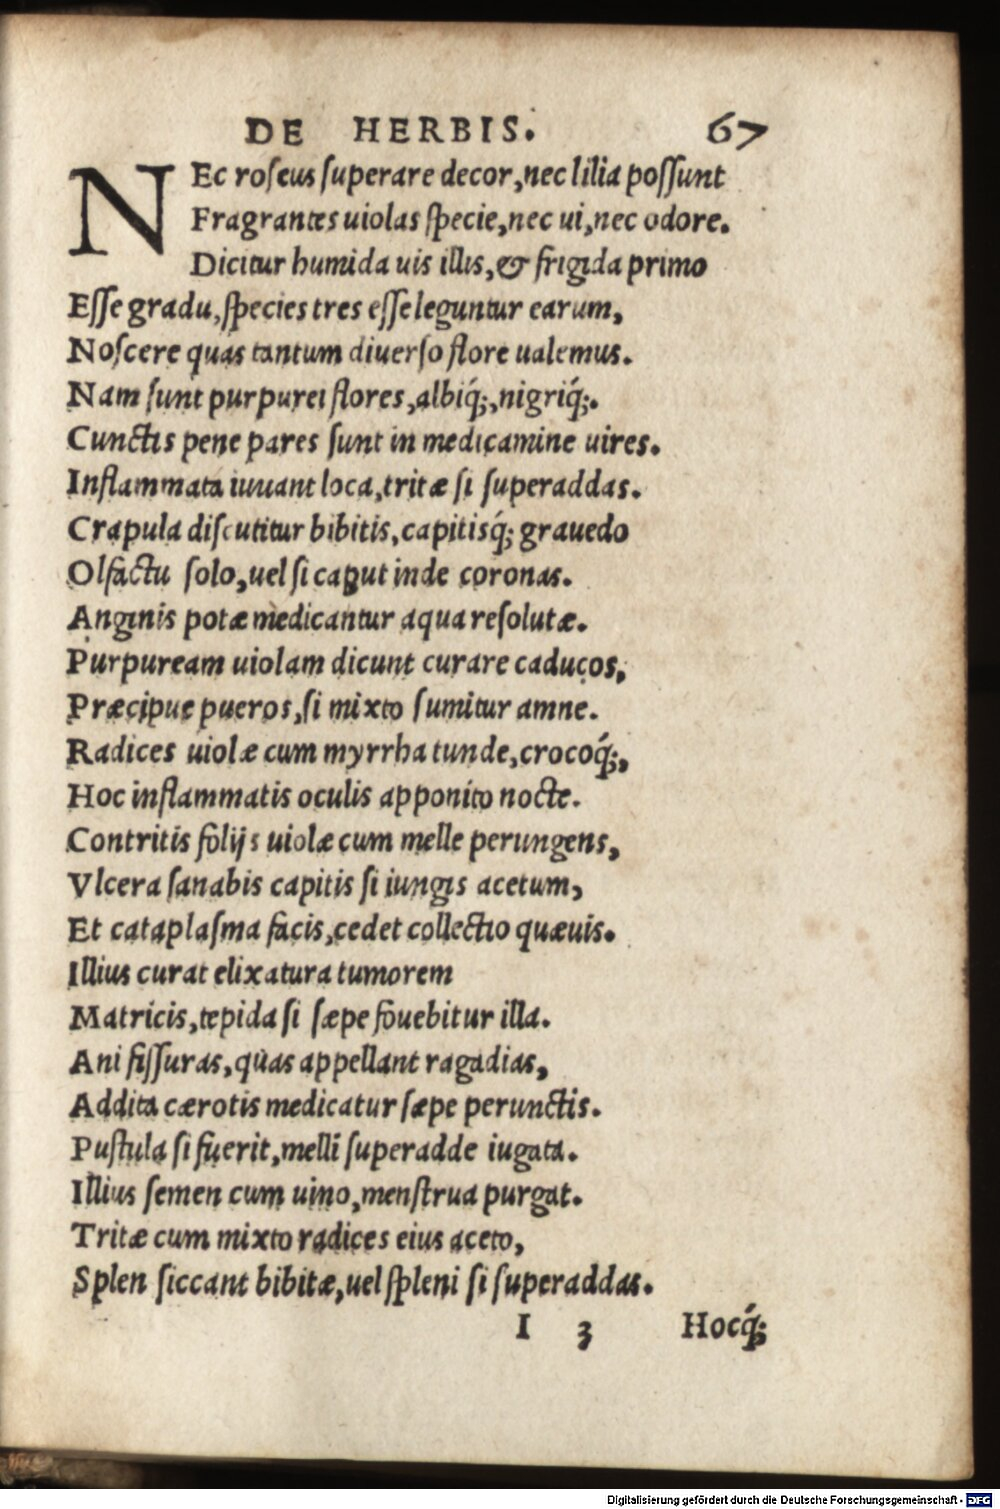 DE HERBIS. 67
NEc roseus superare decor, nec lilia possunt
Fragrantes uiolas specie, nec ui, nec odore.
Dicitur humida uis illis, & frigida primo
Esse gradu, species tres esse leguntur earum,
Noscere quas tantum diuerso flore ualemus.
Nam sunt purpurei flores, albiq́;, nigriq́;.
Cunctis pene pares sunt in medicamine uires.
Inflammata iuuant loca, tritæ si superaddas.
Crapula discutitur bibitis, capitisq́; grauedo
Olfactu solo, uel si caput inde coronas.
Anginis potæ medicantur aqua resolutæ.
Purpuream uiolam dicunt curare caducos,
Præcipue pueros, si mixto sumitur amne.
Radices uiolæ cum myrrha tunde, crocoq́;,
Hoc inflammatis oculis apponito nocte.
Contritis folijs uiolæ cum melle perungens,
Vlcera sanabis capitis si iungis acetum,
Et cataplasma facis, cedet collectio quæuis.
Illius curat elixatura tumorem
Matricis, tepida si sæpe fouebitur illa.
Ani fissuras, quas appellant ragadias,
Addita cærotis medicatur sæpe perunctis.
Pustula si fuerit, melli superadde iugata.
Illius semen cum uino, menstrua purgat.
Tritæ cum mixto radices eius aceto,
Splen siccant bibitæ, uel spleni si superaddas.
I 3 Hocq́;
Digitalisierung gefördert durch die Deutsche Forschungsgemeinschaft - DFG